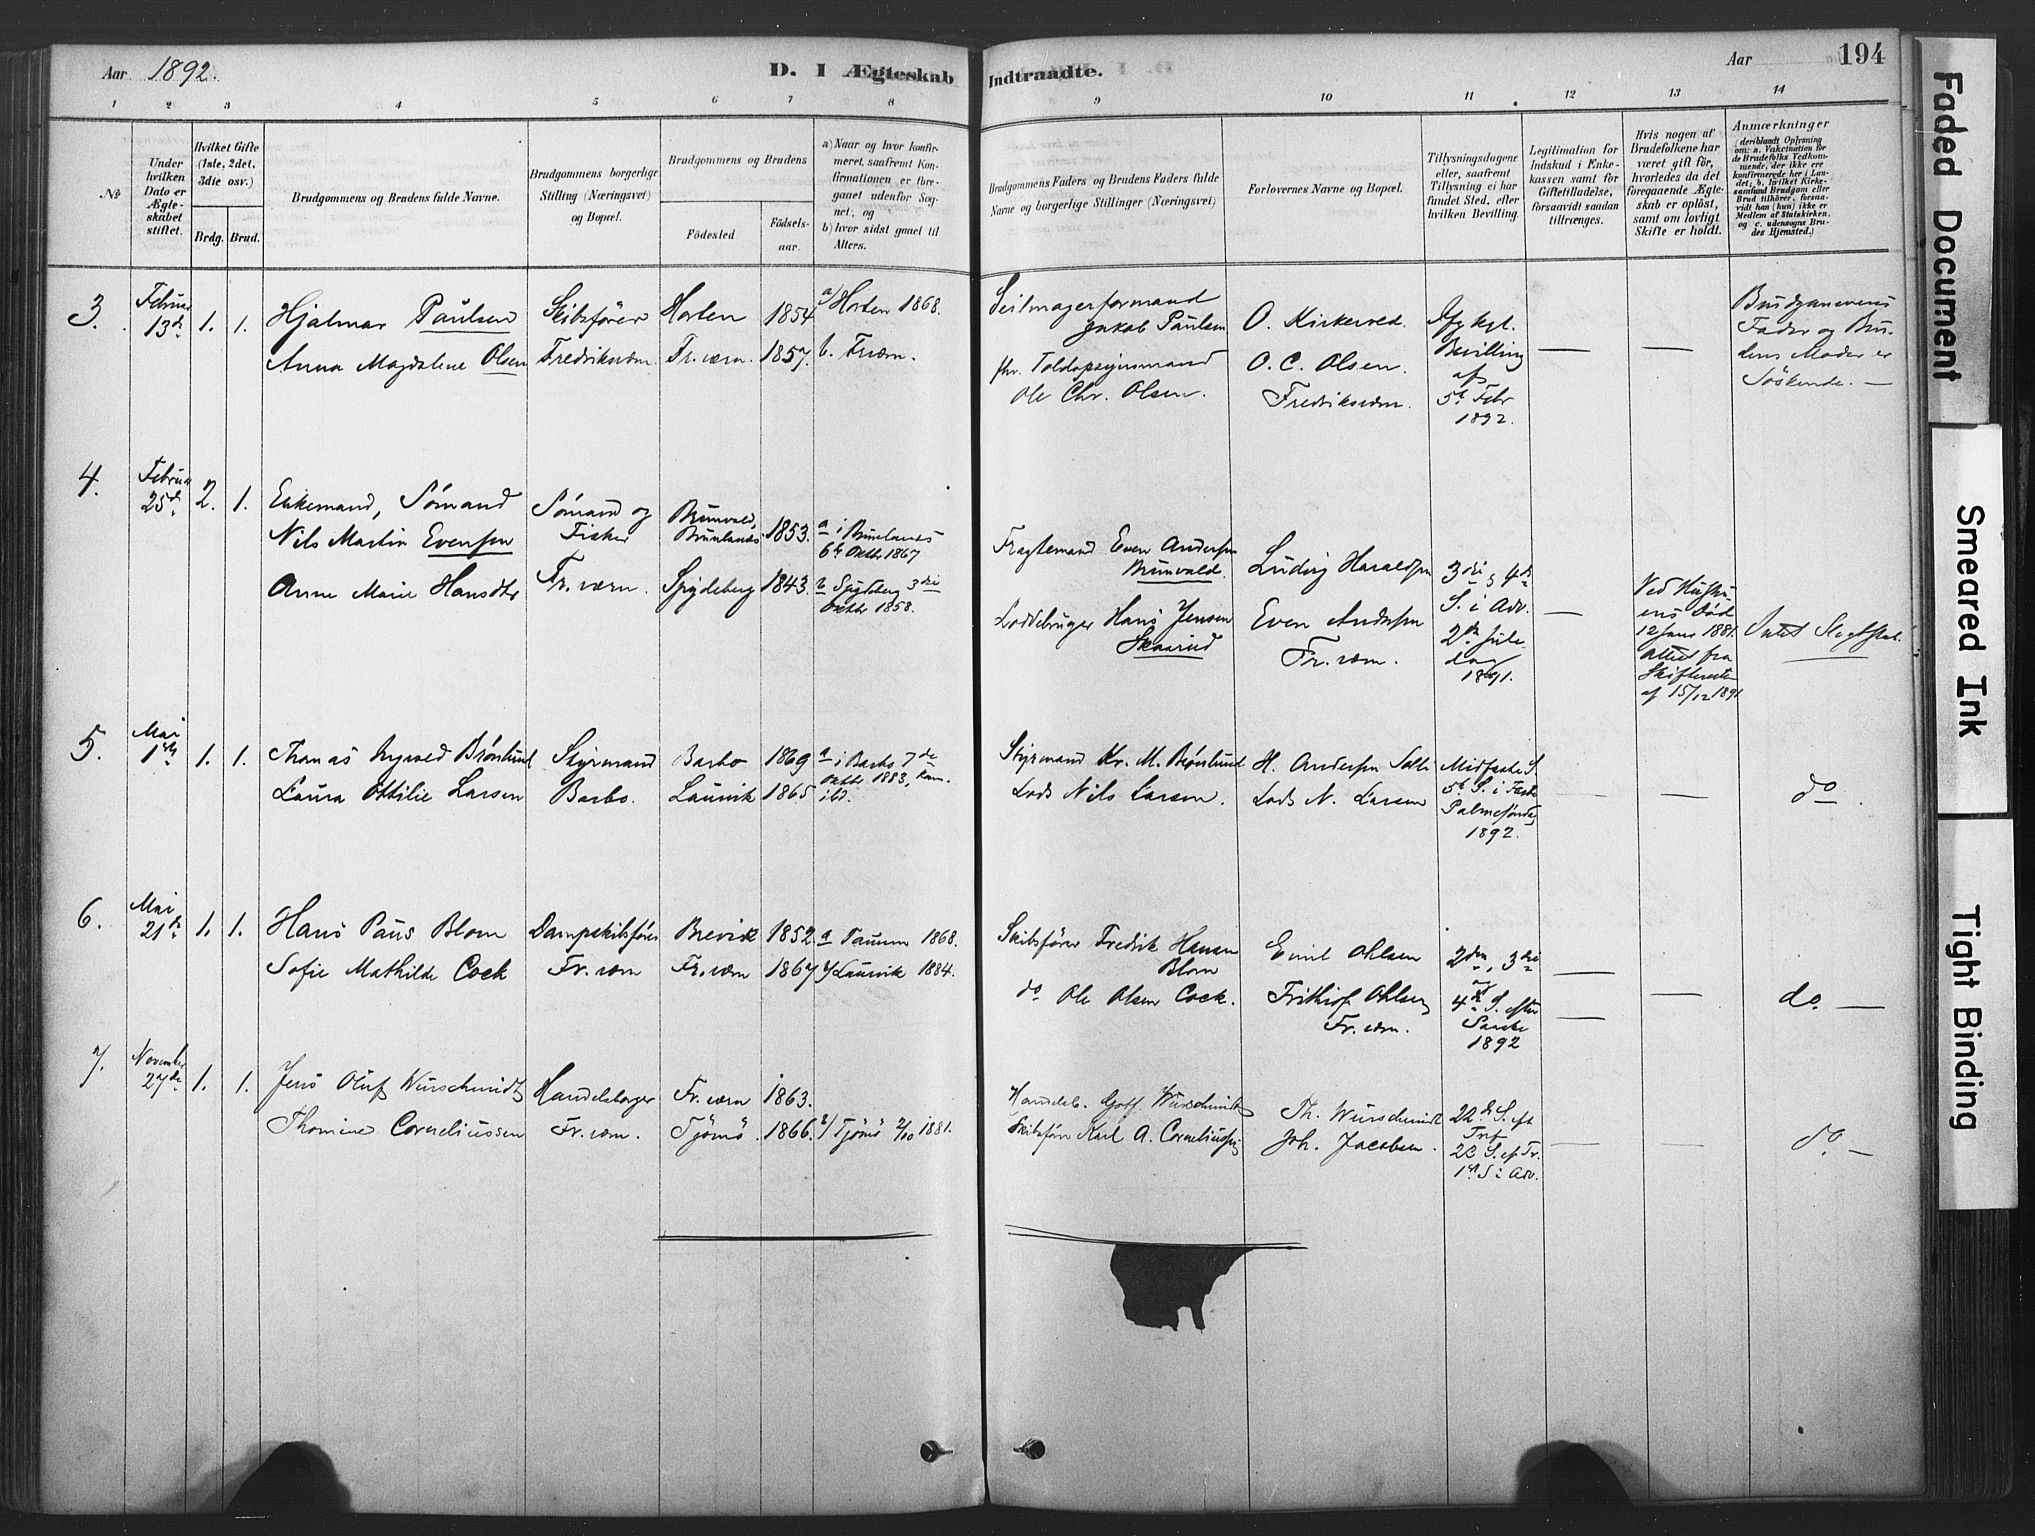 Aar 1892.
D. I Ægteskab Indtraadte.
Aar 194
1 2 3 4 5 6 7 8 9 10 11 12 13 14
№
Under hvilken Dato er Ægteskabet stiftet.
Hvilket Gifte (1ste, 2det, 3die osv.)
Brdg. Brud.
Brudgommens og Brudens fulde Navne.
Brudgommens borgerlige Stilling (Næringsvei) og Bopæl.
Brudgommens og Brudens
Fødested. Fødselsaar.
a) Naar og hvor konfirmeret, saafremt Konfirmationen er foregaaet udenfor Sognet, og
b) hvor sidst gaaet til Alters.
Brudgommens Faders og Brudens Faders fulde Navne og borgerlige Stillinger (Næringsvei)
Forlovernes Navne og Bopæl.
Tillysningsdagene eller, saafremt Tillysning ei har fundet Sted, efter hvilken Bevilling
Legitimation for Indskud i Enkekassen samt for Giftetilladelse, forsaavidt saadan tiltrænges.
Hvis nogen af Brudefolkene har været gift før, hvorledes da det foregaaende Ægteskab er opløst, samt om lovligt Skifte er holdt.
Anmærkninger
(deriblandt Oplysning om: a. Vakcination for de Brudefolks Vedkommende, der ikke ere konfirmerede her i Landet; b. hvilket Kirkesamfund Brudgom eller Brud tilhører, forsaavidt han (hun) ikke er Medlem af Statskirken, og c. udensogns Brudes Hjemsted.)
3.
Februar
13de
1. 1.
Hjalmar Paulsen
Skibsfører
Horten
1854
a) Horten 1868.
Anna Magdalene Olsen
Fredriksværn
Fr. værn.
1857.
b. Frværn.
Seilmagerformand
Jakob Paulsen
fhv. Toldopsynsmand
Ole Chr. Olsen.
O. Kirkeved.
O. C. Olsen.
Fredriksværn.
Kgl.
Bevilling
af
5te Febr
1892.
Brudgommens
Fader og Brudens Moder er
Søskende. —
4.
Februar
25de
2. 1.
Enkemand, Sømand
Nils Martin Evensen
Anne Marie Hansdtr
Sømand og
Fisker
Fr. værn.
Brunvald,
Brunlanæs
Spydeberg
1853.
1843.
a i Brunlanæs
6te Oktbr. 1867
b Spydeberg 3die
Oktbr 1858.
Fragtemand Even Andersen
Brunvald.
Loddebruger Hans Jensen
Skaarud
Ludvig Haraldsen
Even Andersen
Fr. værn.
3die, 4de
S. i Adv.
2den Jule
dag
1891.
Ved Hustruens Død
12 Janr 1881.
Attest fra
Skifteretten
af 15/12 1891
Intet Slegtskab.
5.
Mai
1ste
1. 1.
Thomas Nygvold Brønlund
Laura Ottilie Larsen
Styrmand
Barbo.
Barbo
Laurvik
1869
1865
a i Barbo 7de
Oktbr 1883,
ibd.
Styrmand Kr. M. Brønlund
Lods Nils Larsen.
H. Andersen
Lods N. Larsen
Midfaste S.
5te S. i Faste
Palmesøndag
1892.
do.
6.
Mai
21de
1. 1.
Hans Paus Blom
Sofie Mathilde Cock
Dampskibsfører
Fr. værn
Brevik
Fr. værn
1852.
1867
a Taunum 1868.
b/ Laurvik 1884.
Skibsfører Fredrik Hansen
Blom
do Ole Olsen Cock.
Emil Ohlsen
Frithjof Ohlsen
Fr. værn.
2den, 3die
og
4de S. efter
Paaske
1892
do. —
7.
November
27de
1. 1.
Jens Oluf Wurschmidt
Thomine Corneliussen
Handelsborger
Fr. værn.
Fr. værn
Tjømø
1863.
1866.
a/ Tjømø 2/10 1881.
Handelsb. Gott. Wurschmidt
Skibsfører Karl A. Corneliussen
Th. Wurschmidt
Joh. Jacobsen.
22de S. eft
Tref
22 S. ef Tr.
1ste S i Adv.
do. —
Faded Document
Smeared Ink
Tight Binding